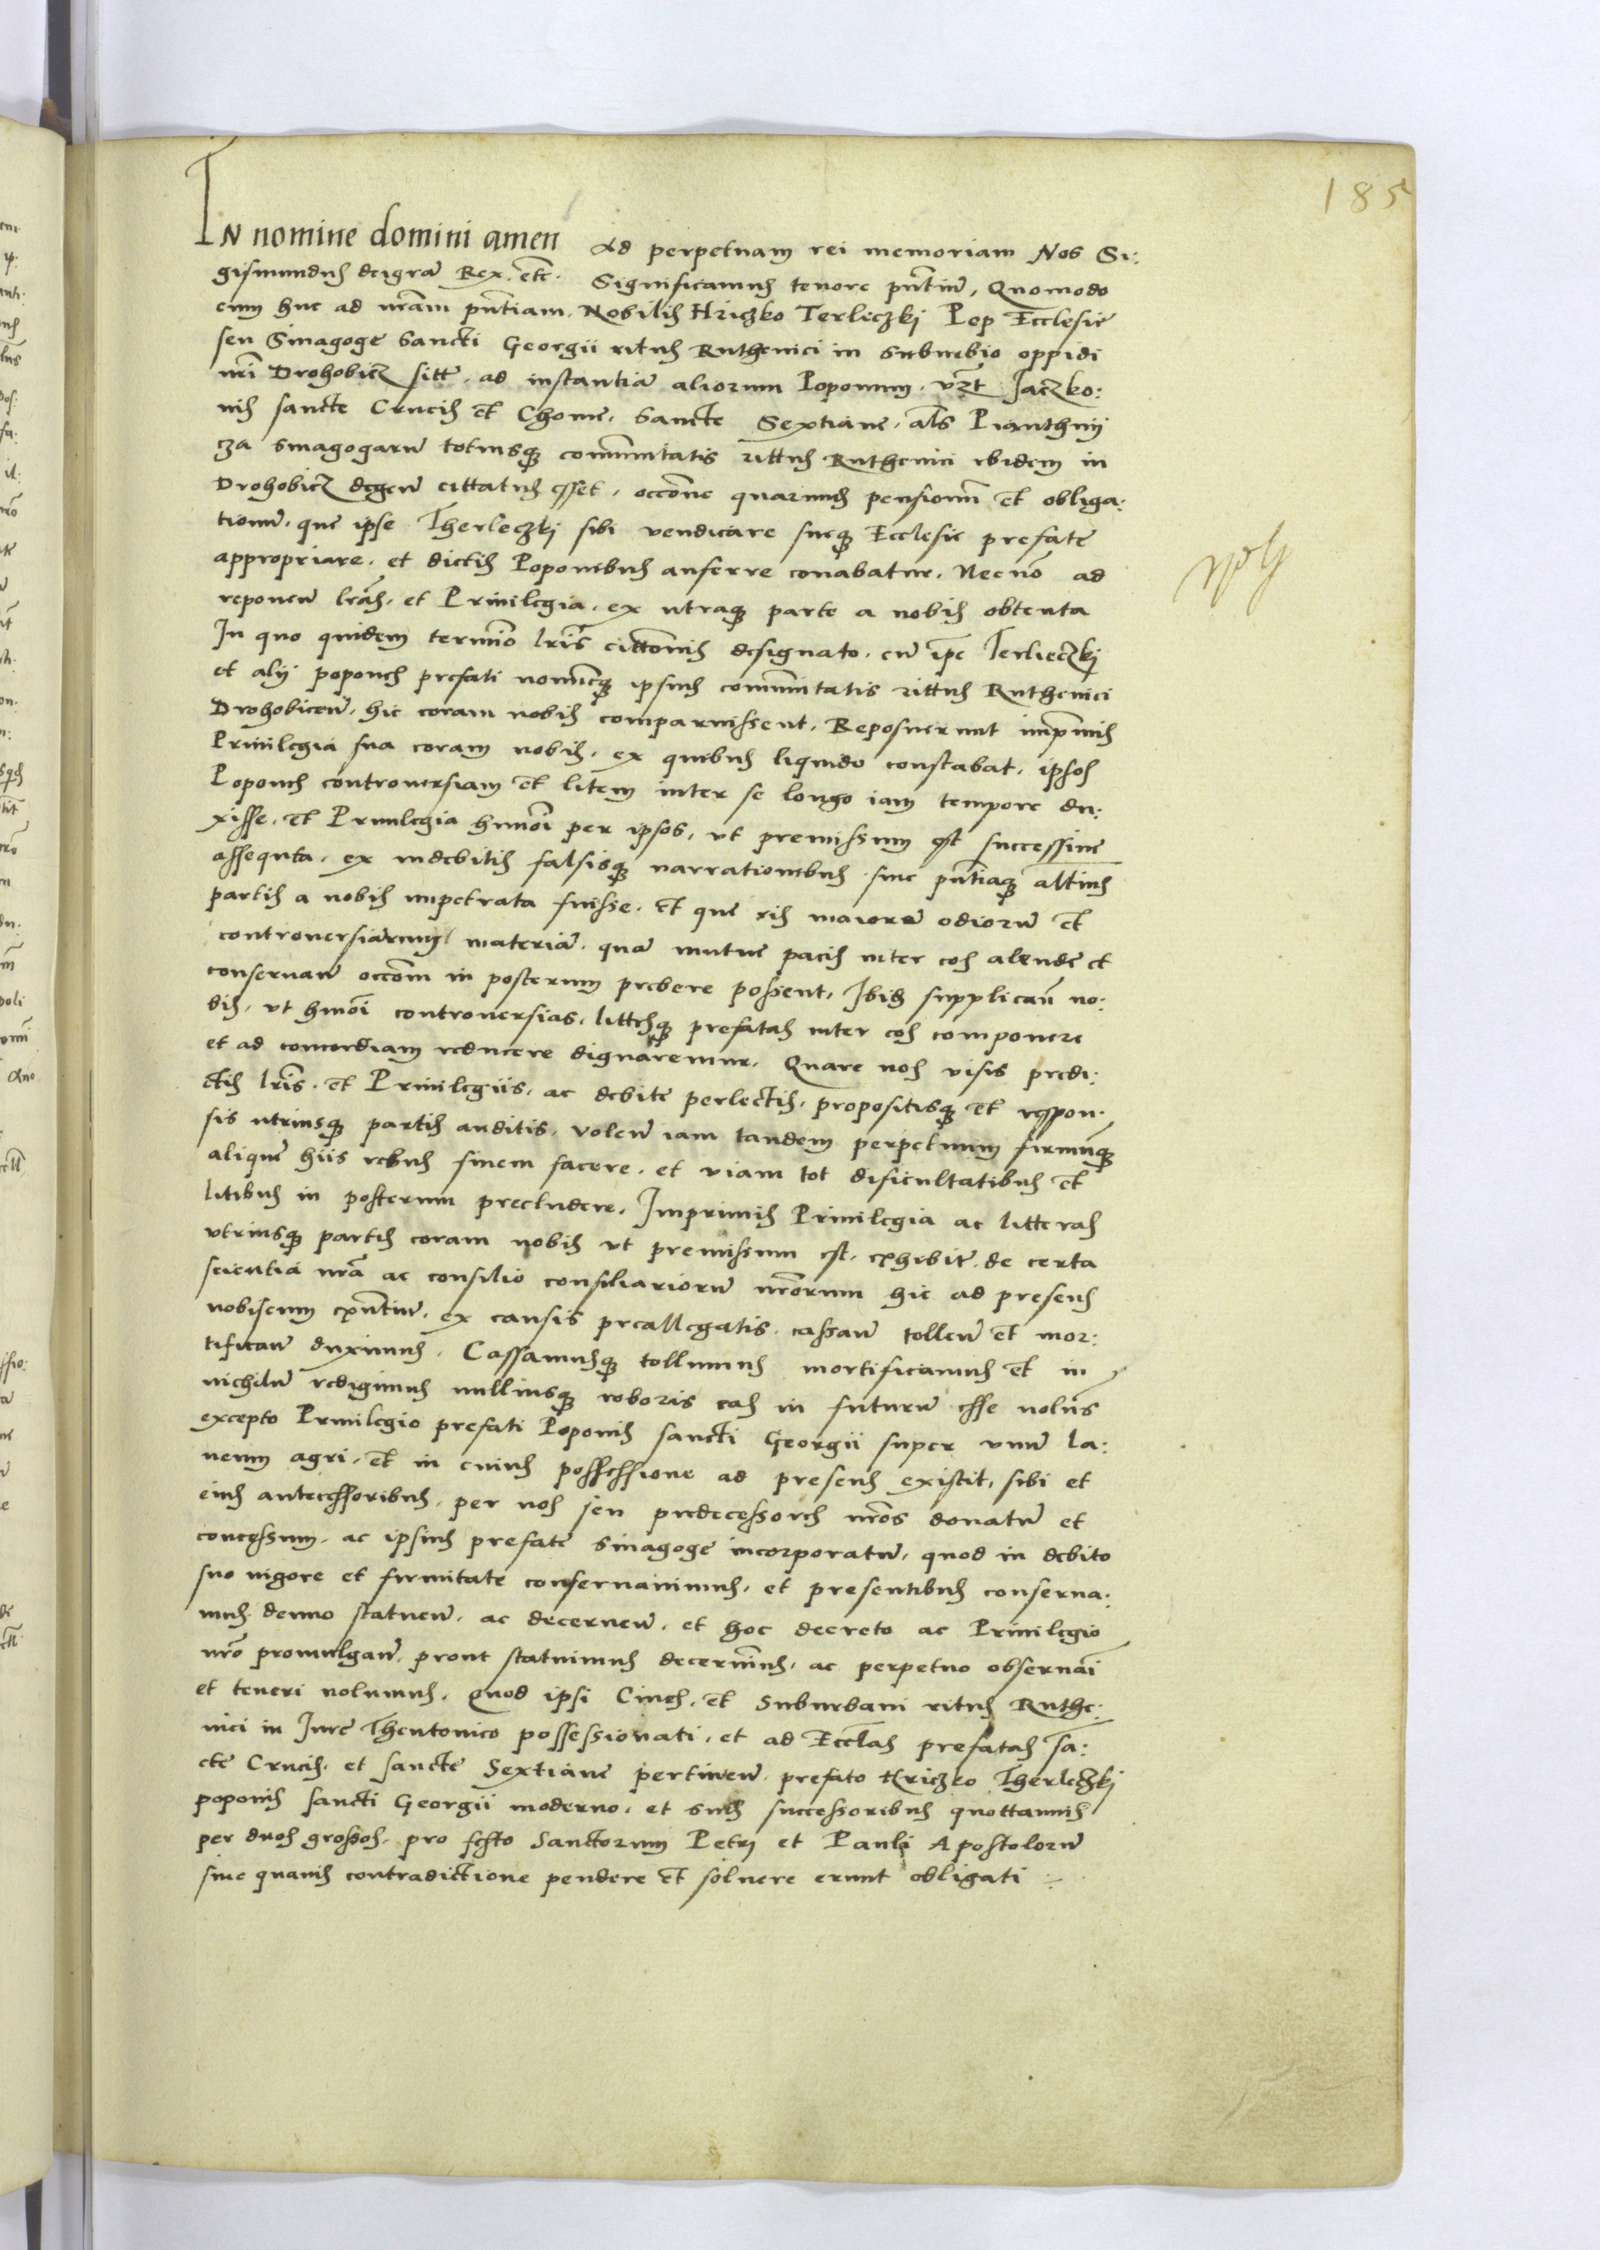 185
In nomine domini amen Ad perpetuam rei memoriam Nos Si:
gismundus dei gra͞ Rex etc. Significamus tenore pn͞tium, Quomodo
cum huc ad nr͞am pn͞tiam Nobilis Hriczko Terleczkj Pop Ecclesie
seu Sinagoge Sancti Georgii ritus Ruthenici in suburbio oppidi
nr͞i Drohobicz sitt. ad instantia͞ aliorum Poponum vz͞t Jaczko:
nis sancte Crucis et Chome, Sancte Sextiane, al͞s Pianthnij
cza sinagogaru͞ totiusq; communitatis rittus Ruthenici ibidem in
Drohobicz degen͞ cittatus esset, occo͞ne quarundam pensionu͞ et obliga:
tionu͞, que ipse Therleczkj sibi vendicare sueq; Ecclesie prefate
appropriare, et dictis Poponibus auferre conabatur, Necno͞ ad
reponen͞ lr͞as, et Priuilegia, ex utraq; parte a nobis obtenta
In quo quidem termino lr͞is citto͞nis designato, cu͞ ip͞e Terlieczkj
et alij popones prefati nomineq; ipsius communitatis rittus Ruthenici
Drohobicen͞, hic coram nobis comparuissent, Reposuerunt imp͞mis
Priuilegia sua coram nobis, ex quibus liquido constabat, ipsos
Popones controuersiam et litem inter se longo iam tempore du:
xisse, et Priuilegia hmo͞i per ipsos, ut premissum est successiue
assequta, ex indebitis falsisq; narrationibus sine pn͞tiaq; altius
partis a nobis impetrata fuisse, et que eis maiorem odioru͞ et
controuersiarum materia͞, qua͞ mutue pacis inter eos alende et
conseruan͞ occo͞m in posterum prebere possent, Ibiq; supplicaru͞ no:
bis, ut hmo͞i controuersias, littesq; prefatas inter eos componere
et ad concordiam reducere dignaremur. Quare nos visis predi:
ctis lr͞is et Priuilegiis, ac debite perlectis, propositisq; et respon:
sis utriusq; partis auditis, volen͞ iam tandem perpetuum firmu͞q;
alique͞ hiis rebus finem facere, et viam tot dificultatibus et
litibus in posterum precludere, Imprimis Priuilegia ac litteras
vtriusq; partis coram nobis ut premissum est, exhibite, de certa
scientia nr͞a ac consilio consiliarioru͞ nr͞orum hic ad presens
nobiscum exn͞tiu͞, ex causis preallegatis cassan͞ tollen͞ et mor:
tifican͞ duximus, Cassamusq; tollimus mortificamus et in
nichilu͞ redigimus nulliusq; roboris eas in futuru͞ esse volu͞s
excepto Priuilegio prefati Poponis sancti Georgii super vnu͞ la:
neum agri, et in cuius possessione ad presens existit, sibi et
eius antecessoribus, per nos seu predecessores nr͞os donatu͞ et
concessum, ac ipsius prefate sinagoge incorporatu͞, quod in debito
suo uigore et firmitate conseruauimus, et presentibus conserua:
mus denuo statuen͞, ac decernen͞, et hoc decreto ac Priuilegio
nr͞o promulgan͞, prout statuimus decernim͞us, ac perpetuo obseruari
et teneri volumus, Quod ipsi Ciues, et suburbani ritus Ruthe:
nici in Jure Theutonico possessionati, et ad Eccl͞as prefatas sa͞:
cte Crucis, et sancte Sextiane pertinen͞, prefato Hriczko Therleczkj
poponis sancti Georgii moderno, et suis successoribus quottannis
per duos grossos, pro festo Sanctorum Petri et Pauli Apostoloru͞
sine quauis contradictione pendere et soluere erunt obligati